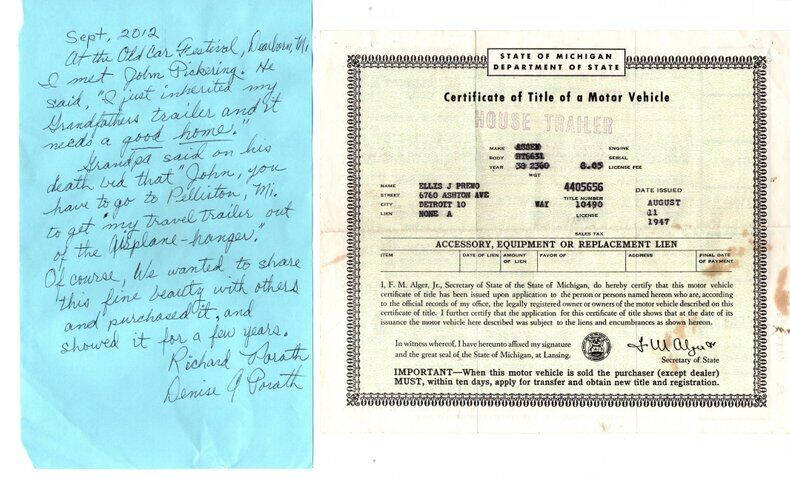 Sept, 2012
At the Old Car Festival, Dearborn, Mi.
I met John Pickering. He
said, "I just inherited my
Grandfathers trailer and it
needs a good home."
Grandpa said on his
death bid that "John, you
have to go to Pellston, Mi.
to get my travel trailer out
of the Airplane-hanger."
Of course, We wanted to share
this fine beauty with others
and purchased it, and
showed it for a few years.
Richard Porath
Denise A Porath
STATE OF MICHIGAN
DEPARTMENT OF STATE
Certificate of Title of a Motor Vehicle
HOUSE TRAILER
MAKE ASSEM ENGINE
BODY SERIAL
YEAR 39 2360 8.05 LICENSE FEE
WGT
NAME ELLIS J PREMO 4405656 DATE ISSUED
STREET 6760 ASHTON AVE TITLE NUMBER
CITY DETROIT 10 WAY 10490 AUGUST
LIEN NONE A LICENSE 11
1947
SALES TAX
ACCESSORY, EQUIPMENT OR REPLACEMENT LIEN
ITEM DATE OF LIEN AMOUNT OF LIEN FAVOR OF ADDRESS FINAL DATE OF PAYMENT
I, F. M. Alger, Jr., Secretary of State of the State of Michigan, do hereby certify that this motor vehicle
certificate of title has been issued upon application to the person or persons named hereon who are, according
to the official records of my office, the legally registered owner or owners of the motor vehicle described on this
certificate of title. I further certify that the application for this certificate of title shows that at the date of its
issuance the motor vehicle here described was subject to the liens and encumbrances as shown hereon.
In witness whereof, I have hereunto affixed my signature
and the great seal of the State of Michigan, at Lansing.
F M Alger Jr
Secretary of State
IMPORTANT—When this motor vehicle is sold the purchaser (except dealer)
MUST, within ten days, apply for transfer and obtain new title and registration.